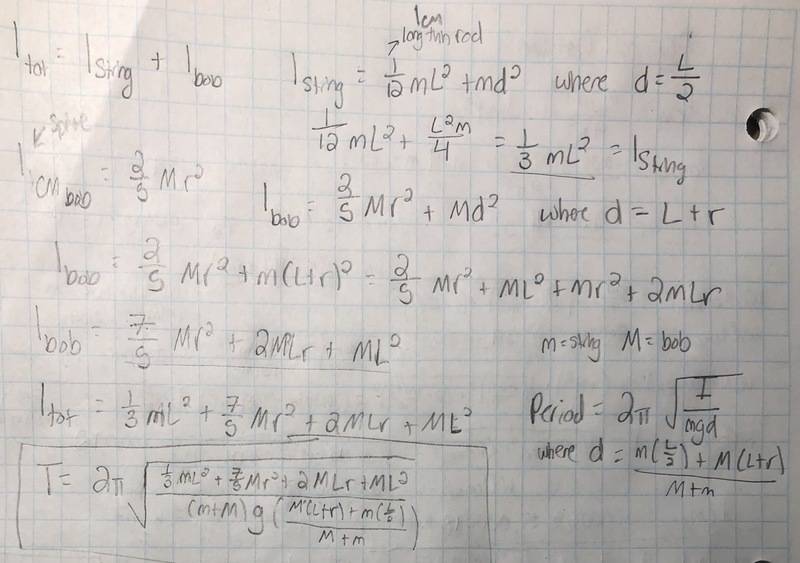 I_tot = I_String + I_bob
I_cm long thin rod
I_String = 1/12 mL² + md² where d = L/2
1/12 mL² + L²m/4 = 1/3 mL² = I_String
I_CM bob = 2/5 Mr²
I_bob = 2/5 Mr² + Md² where d = L+r
I_bob = 2/5 Mr² + m(L+r)² = 2/5 Mr² + ML² + Mr² + 2MLr
I_bob = 7/5 Mr² + 2MLr + ML²
m = string M = bob
I_tot = 1/3 mL² + 7/5 Mr² + 2MLr + ML²
Period = 2π √(I/mgd)
where d = (m(L/2) + M(L+r))/(M+m)
T = 2π √((1/3 mL² + 7/5 Mr² + 2MLr + ML²)/((m+M)g((M(L+r)+m(L/2))/(M+m))))